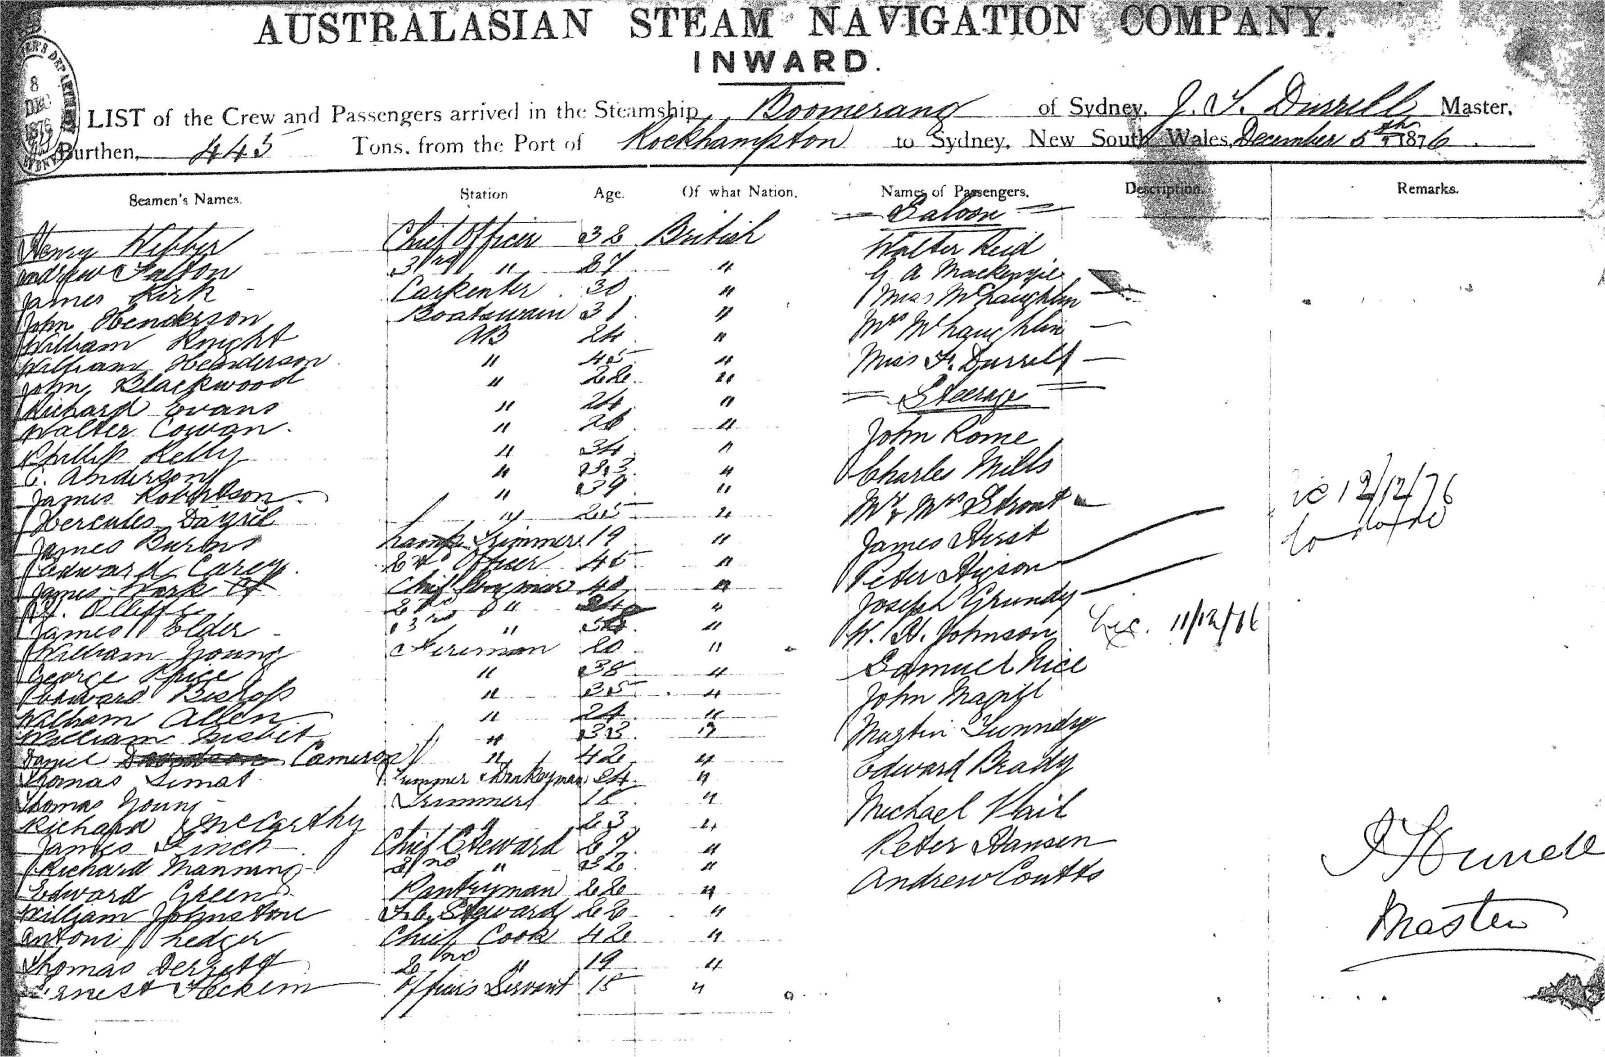 AUSTRALASIAN STEAM NAVIGATION COMPANY.
INWARD.
8 DEC 1876
LIST of the Crew and Passengers arrived in the Steamship Boomerang of Sydney, J. S. Durrell Master,
Burthen, 445 Tons, from the Port of Rockhampton to Sydney, New South Wales, December 5th 1876
Seamen's Names. Station Age. Of what Nation. Names of Passengers. Description. Remarks.
= Saloon =
Henry Webber Chief Officer 38 British Walter Reid
Andrew 3rd " 27 " G A Mackenzie
James Kirk Carpenter 30 " Miss McLaughlin —
John Henderson Boatswain 31 " Mrs McLaughlin —
William Knight AB 24 "
William Henderson " 45 " Miss F. Durrell —
John Blackwood " 22 " = Steerage =
Richard Evans " 24 "
Walter Cowan. " 26 " John Rome
Phillip Kelly " 34 " Charles Mills
C. Anderson " 33 "
James Robertson " 39 " Mr & Mrs Strout
Hercules " 25 " James Hirst
James Burns Lamp Trimmer 19 "
Edward Carey. 2nd Officer 45 " Peter
James Chief 40 " Joseph Grundy
2nd " "
James Elder 3rd " " W. H. Johnson 11/12/76
William Young Fireman 20 "
George Price " 38 " Samuel Nice
Edward Bishop " 35 " John Magill
William Allen " 24 " Martin
William Nisbet " 33 "
Daniel Cameron " 42 " Edward Brady
Thomas Trimmer Donkeyman 24 "
Thomas Young Trimmer 18 " Michael
Richard McCarthy " 23 "
James Linch Chief Steward 27 " Peter Hansen
Richard Manning 2nd " 32 " Andrew Coutts
Edward Green Pantryman 22 "
William Johnstone F.C. Steward 22 "
Antoni Chief Cook 42 "
Thomas Derrett 2nd " 19 "
Ernest Officers Servant 15 "
12/12/76
Master